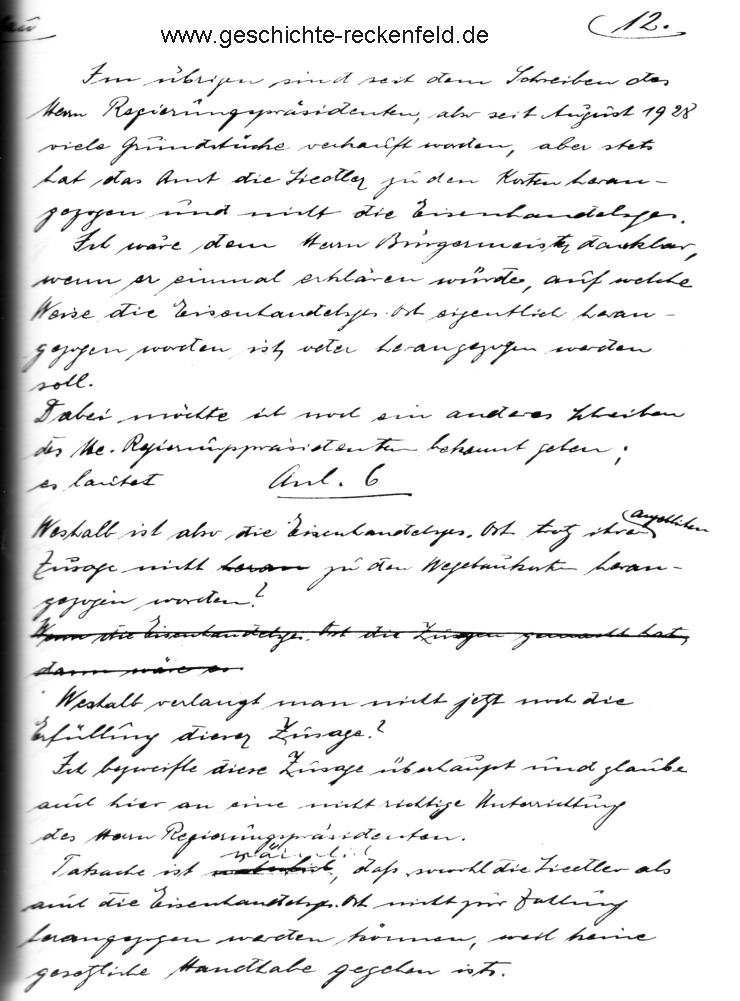 www.geschichte-reckenfeld.de
12.
Im übrigen sind seit dem Schreiben des
Herrn Regierungspräsidenten, also seit August 1928
viele Grundstücke verkauft worden, aber stets
hat das Amt die Siedler zu den Kosten heran-
gezogen und nicht die Eisenhandelsges.
Ich wäre dem Herrn Bürgermeister dankbar,
wenn er einmal erklären würde, auf welche
Weise die Eisenhandelsges. Ost eigentlich heran-
gezogen worden ist, oder herangezogen werden
soll.
Dabei möchte ich noch ein anderes Schreiben
des He. Regierungspräsidenten bekannt geben;
es lautet Anl. 6
angeblichen
Weshalb ist also die Eisenhandelsges. Ost trotz ihrer
Zusage nicht heran zu den Wegebaukosten heran-
gezogen worden?
Wenn die Eisenhandelsges. Ost die Zusagen gemacht hat,
dann wäre es
Weshalb verlangt man nicht jetzt noch die
Erfüllung dieser Zusage?
Ich bezweifle diese Zusage überhaupt und glaube
auch hier an eine nicht richtige Unterrichtung
des Herrn Regierungspräsidenten.
nämlich
Tatsache ist, daß sowohl die Siedler als
auch die Eisenhandelsges. Ost nicht zur Zahlung
herangezogen werden können, weil keine
gesetzliche Handhabe gegeben ist.